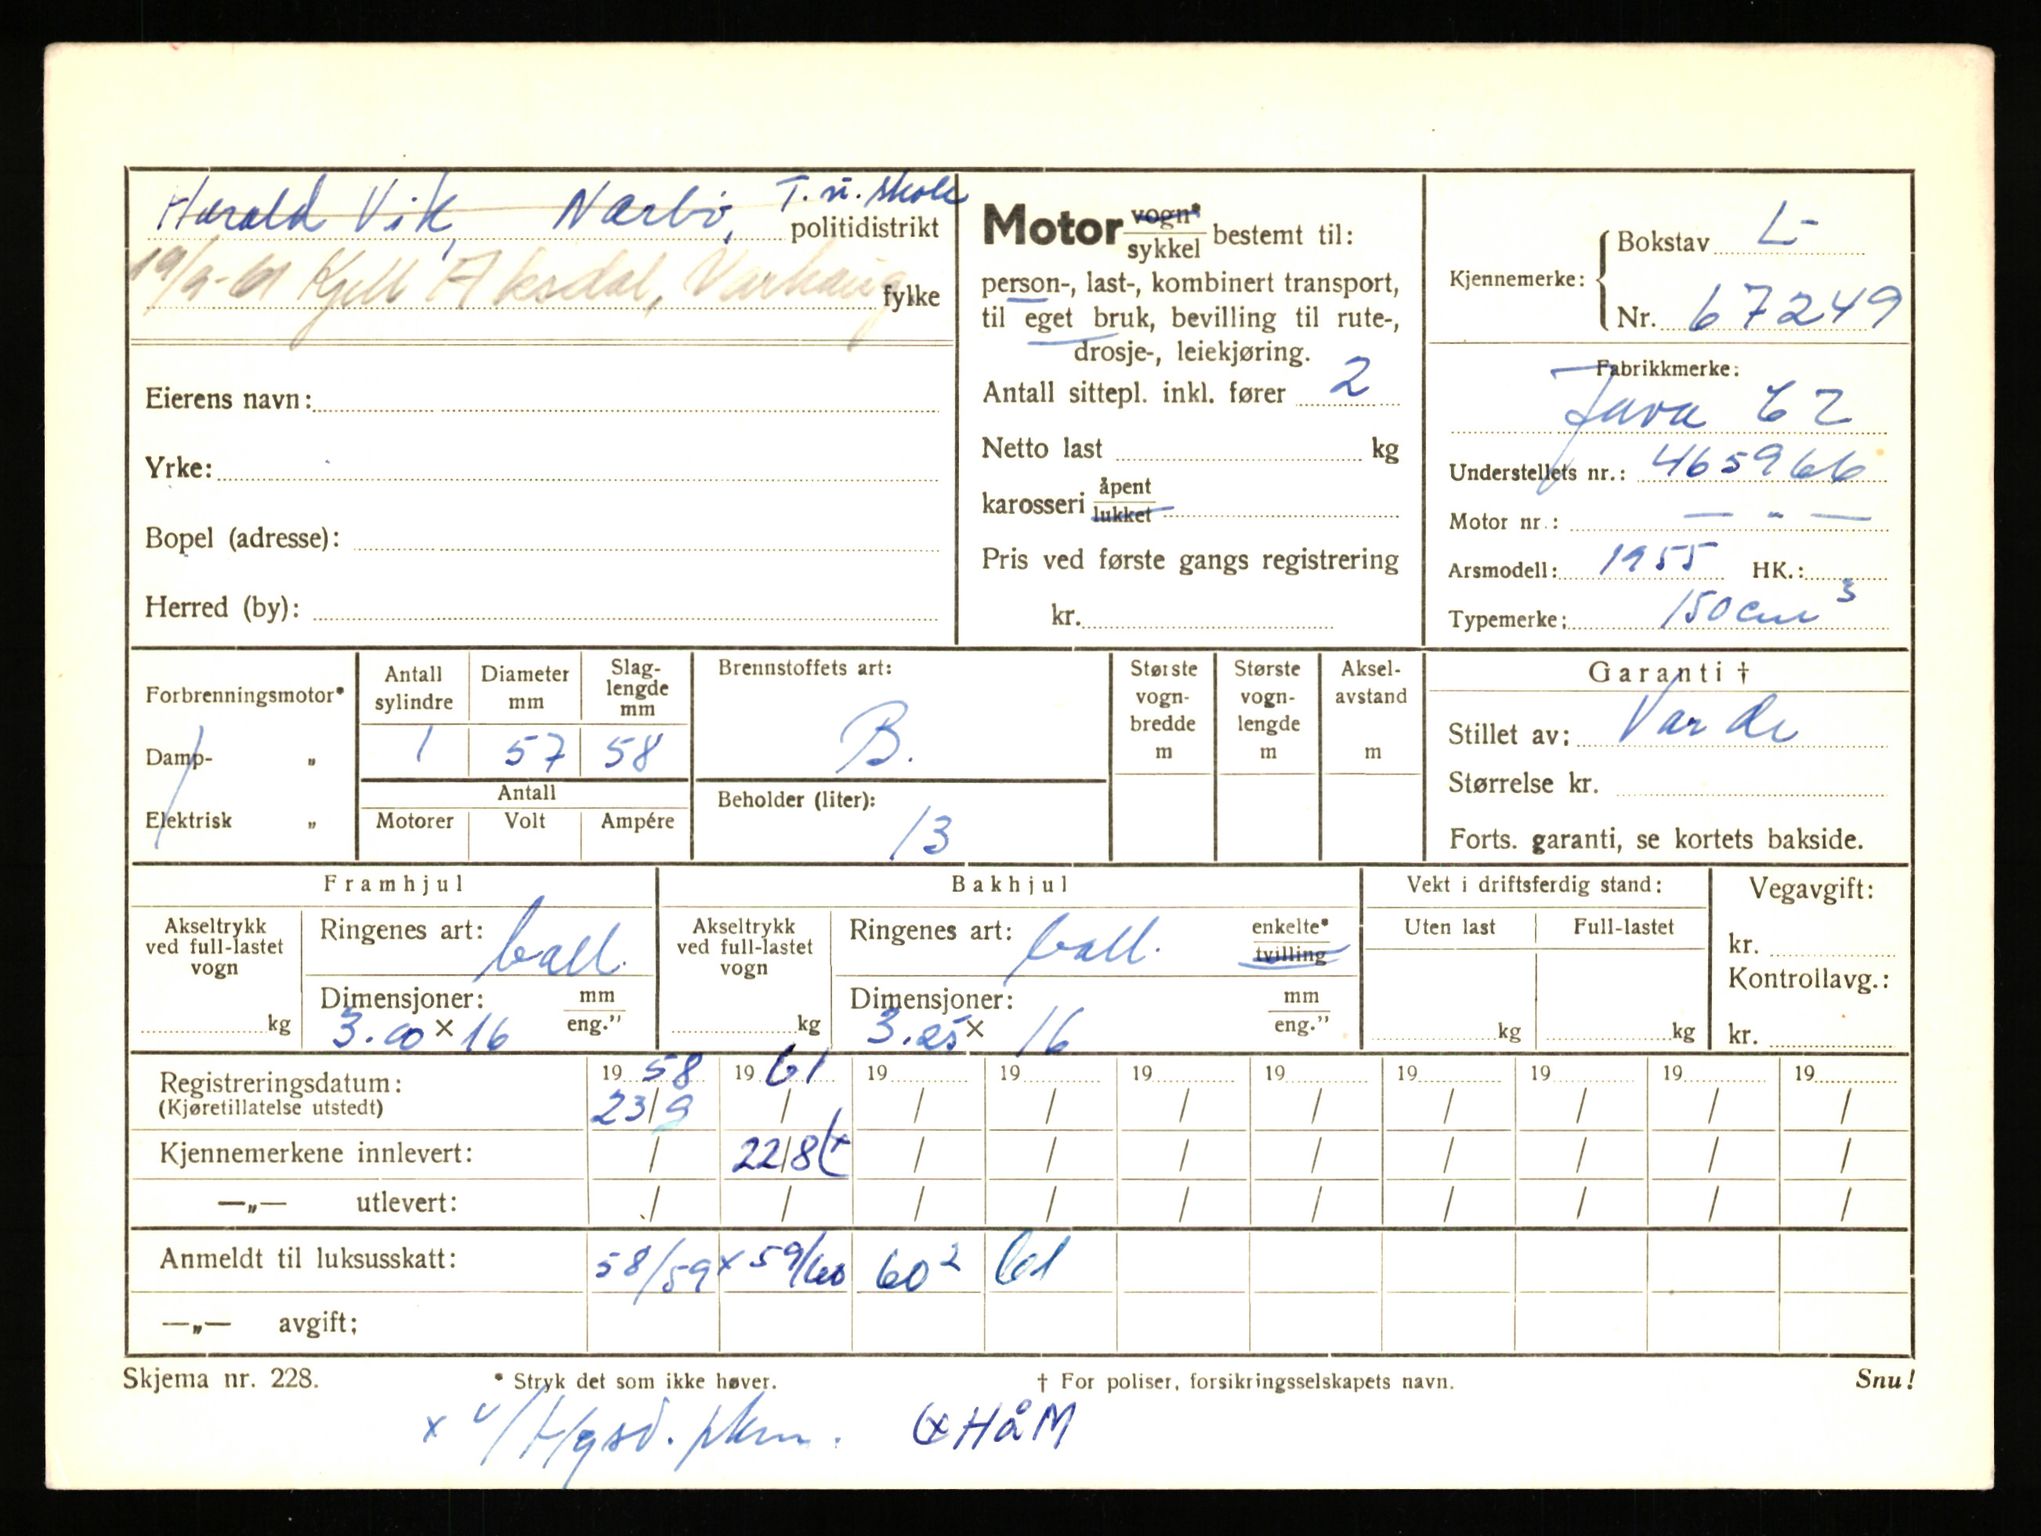 Harald Vik, Nærbø, T. u. skole
politidistrikt
19/9-61 Kjell Aksdal, Varhaug
fylke
Eierens navn:
Yrke:
Bopel (adresse):
Herred (by):
Motor vogn* sykkel bestemt til:
person-, last-, kombinert transport,
til eget bruk, bevilling til rute-,
drosje-, leiekjøring.
Antall sittepl. inkl. fører 2
Netto last kg
karosseri åpent lukket
Pris ved første gangs registrering
kr.
Kjennemerke: Bokstav L-
Nr. 67249
Fabrikkmerke:
Java CZ
Understellets nr.: 465966
Motor nr.: — " —
Arsmodell: 1955 HK.:
Typemerke: 150 cm3
Forbrenningsmotor*
Damp- „
Elektrisk „
Antall sylindre
Diameter mm
Slag-lengde mm
1 57 58
Antall
Motorer Volt Ampére
Brennstoffets art:
B.
Beholder (liter):
13
Største vogn-bredde m
Største vogn-lengde m
Aksel-avstand m
Garanti †
Stillet av: Varde
Størrelse kr.
Forts. garanti, se kortets bakside.
Framhjul
Akseltrykk ved full-lastet vogn
kg
Ringenes art: ball.
Dimensjoner: mm eng."
3.00 × 16
Bakhjul
Akseltrykk ved full-lastet vogn
kg
Ringenes art: ball. enkelte* tvilling
Dimensjoner: mm eng."
3.25 × 16
Vekt i driftsferdig stand:
Uten last Full-lastet
kg kg
Vegavgift:
kr.
Kontrollavg.:
kr.
Registreringsdatum: 19 58 19 61 19 19 19 19 19 19 19 19
(Kjøretillatelse utstedt) 23/9 / / / / / / / / /
Kjennemerkene innlevert: / 22/8 (+ / / / / / / / /
—„— utlevert: / / / / / / / / / /
Anmeldt til luksusskatt: 58/59 x 59/60 60² 61
—„— avgift;
Skjema nr. 228. * Stryk det som ikke høver. † For poliser, forsikringsselskapets navn. Snu!
x HåM